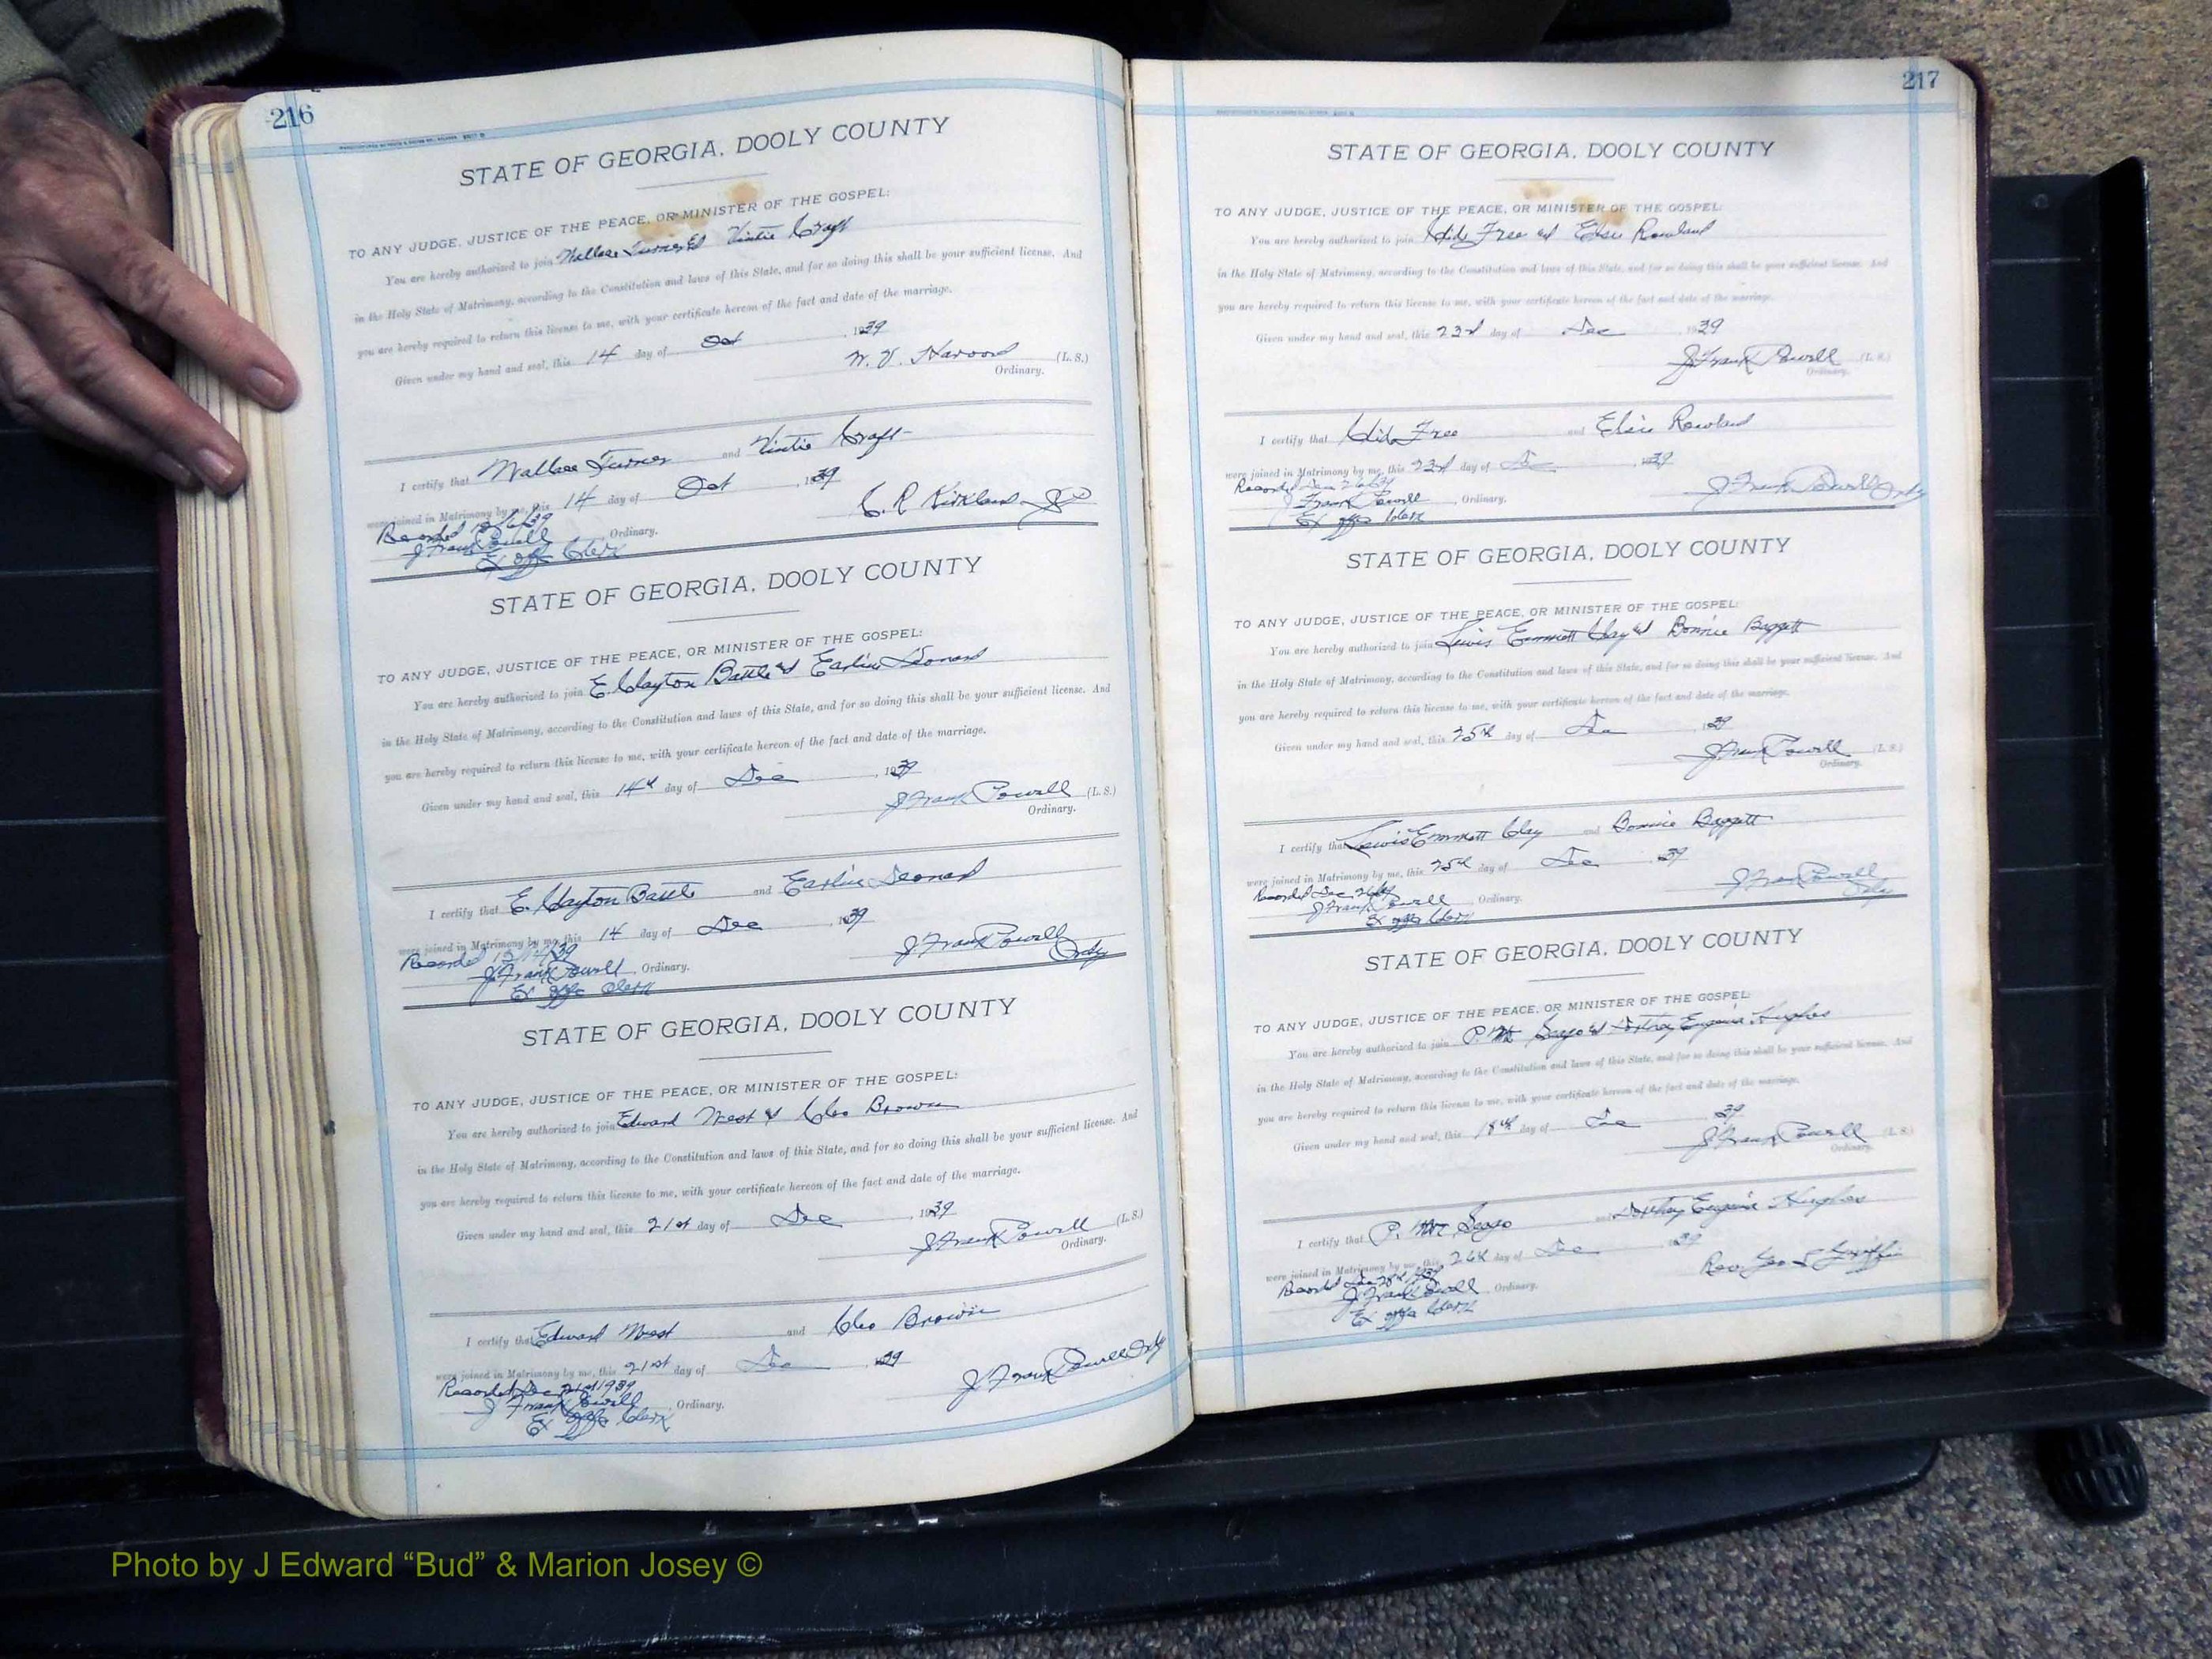 216
STATE OF GEORGIA, DOOLY COUNTY
TO ANY JUDGE, JUSTICE OF THE PEACE, OR MINISTER OF THE GOSPEL:
You are hereby authorized to join Wallace Turner & Vintie Craft
in the Holy State of Matrimony, according to the Constitution and laws of this State, and for so doing this shall be your sufficient license. And
you are hereby required to return this license to me, with your certificate hereon of the fact and date of the marriage.
Given under my hand and seal, this 14 day of Oct , 1939
W. V. Harvard (L. S.)
Ordinary.
I certify that Wallace Turner and Vintie Craft
were joined in Matrimony by me, this 14 day of Oct , 1939
C. R Kirkland JP
Recorded 12/6/39
J Frank Powell , Ordinary.
Ex offo Clerk
STATE OF GEORGIA, DOOLY COUNTY
TO ANY JUDGE, JUSTICE OF THE PEACE, OR MINISTER OF THE GOSPEL:
You are hereby authorized to join E. Clayton Battle & Earline Leonard
in the Holy State of Matrimony, according to the Constitution and laws of this State, and for so doing this shall be your sufficient license. And
you are hereby required to return this license to me, with your certificate hereon of the fact and date of the marriage.
Given under my hand and seal, this 14th day of Dec , 1939
J Frank Powell (L. S.)
Ordinary.
I certify that E. Clayton Battle and Earline Leonard
were joined in Matrimony by me, this 14 day of Dec , 1939
J. Frank Powell
Ordy
Recorded 12/14/39
J. Frank Powell , Ordinary.
Ex offo Clerk
STATE OF GEORGIA, DOOLY COUNTY
TO ANY JUDGE, JUSTICE OF THE PEACE, OR MINISTER OF THE GOSPEL:
You are hereby authorized to join Edward West & Cleo Brown
in the Holy State of Matrimony, according to the Constitution and laws of this State, and for so doing this shall be your sufficient license. And
you are hereby required to return this license to me, with your certificate hereon of the fact and date of the marriage.
Given under my hand and seal, this 21st day of Dec , 1939
J Frank Powell (L. S.)
Ordinary.
I certify that Edward West and Cleo Brown
were joined in Matrimony by me, this 21st day of Dec , 1939
J Frank Powell Ordy
Recorded Dec 21st 1939
J Frank Powell , Ordinary.
Ex offo Clerk
217
STATE OF GEORGIA, DOOLY COUNTY
TO ANY JUDGE, JUSTICE OF THE PEACE, OR MINISTER OF THE GOSPEL:
You are hereby authorized to join Free & Elsie Rowland
in the Holy State of Matrimony, according to the Constitution and laws of this State, and for so doing this shall be your sufficient license. And
you are hereby required to return this license to me, with your certificate hereon of the fact and date of the marriage.
Given under my hand and seal, this 23rd day of Dec , 1939
J. Frank Powell (L. S.)
Ordinary.
I certify that Free and Elsie Rowland
were joined in Matrimony by me, this 23rd day of Dec , 1939
J Frank Powell Ordy
Recorded Dec 26/39
J Frank Powell , Ordinary.
Ex offo Clerk
STATE OF GEORGIA, DOOLY COUNTY
TO ANY JUDGE, JUSTICE OF THE PEACE, OR MINISTER OF THE GOSPEL:
You are hereby authorized to join Lewis Emmett Clay & Bonnie Baggett
in the Holy State of Matrimony, according to the Constitution and laws of this State, and for so doing this shall be your sufficient license. And
you are hereby required to return this license to me, with your certificate hereon of the fact and date of the marriage.
Given under my hand and seal, this 25th day of Dec , 1939
J. Frank Powell (L. S.)
Ordinary.
I certify that Lewis Emmett Clay and Bonnie Baggett
were joined in Matrimony by me, this 25th day of Dec , 39
J Frank Powell
Ordy
Recorded Dec 26/39
J Frank Powell , Ordinary.
Ex offo Clerk
STATE OF GEORGIA, DOOLY COUNTY
TO ANY JUDGE, JUSTICE OF THE PEACE, OR MINISTER OF THE GOSPEL:
You are hereby authorized to join P. Mc Seago & Dorthy Eugenia Hughes
in the Holy State of Matrimony, according to the Constitution and laws of this State, and for so doing this shall be your sufficient license. And
you are hereby required to return this license to me, with your certificate hereon of the fact and date of the marriage.
Given under my hand and seal, this 18th day of Dec , 39
J. Frank Powell (L. S.)
Ordinary.
I certify that P. Mc Seago and Dorthy Eugenia Hughes
were joined in Matrimony by me, this 26th day of Dec , 39
Rev. Geo S Griffin
Recorded Dec 28th 1939
J Frank Powell , Ordinary.
Ex offo Clerk
Photo by J Edward “Bud” & Marion Josey ©